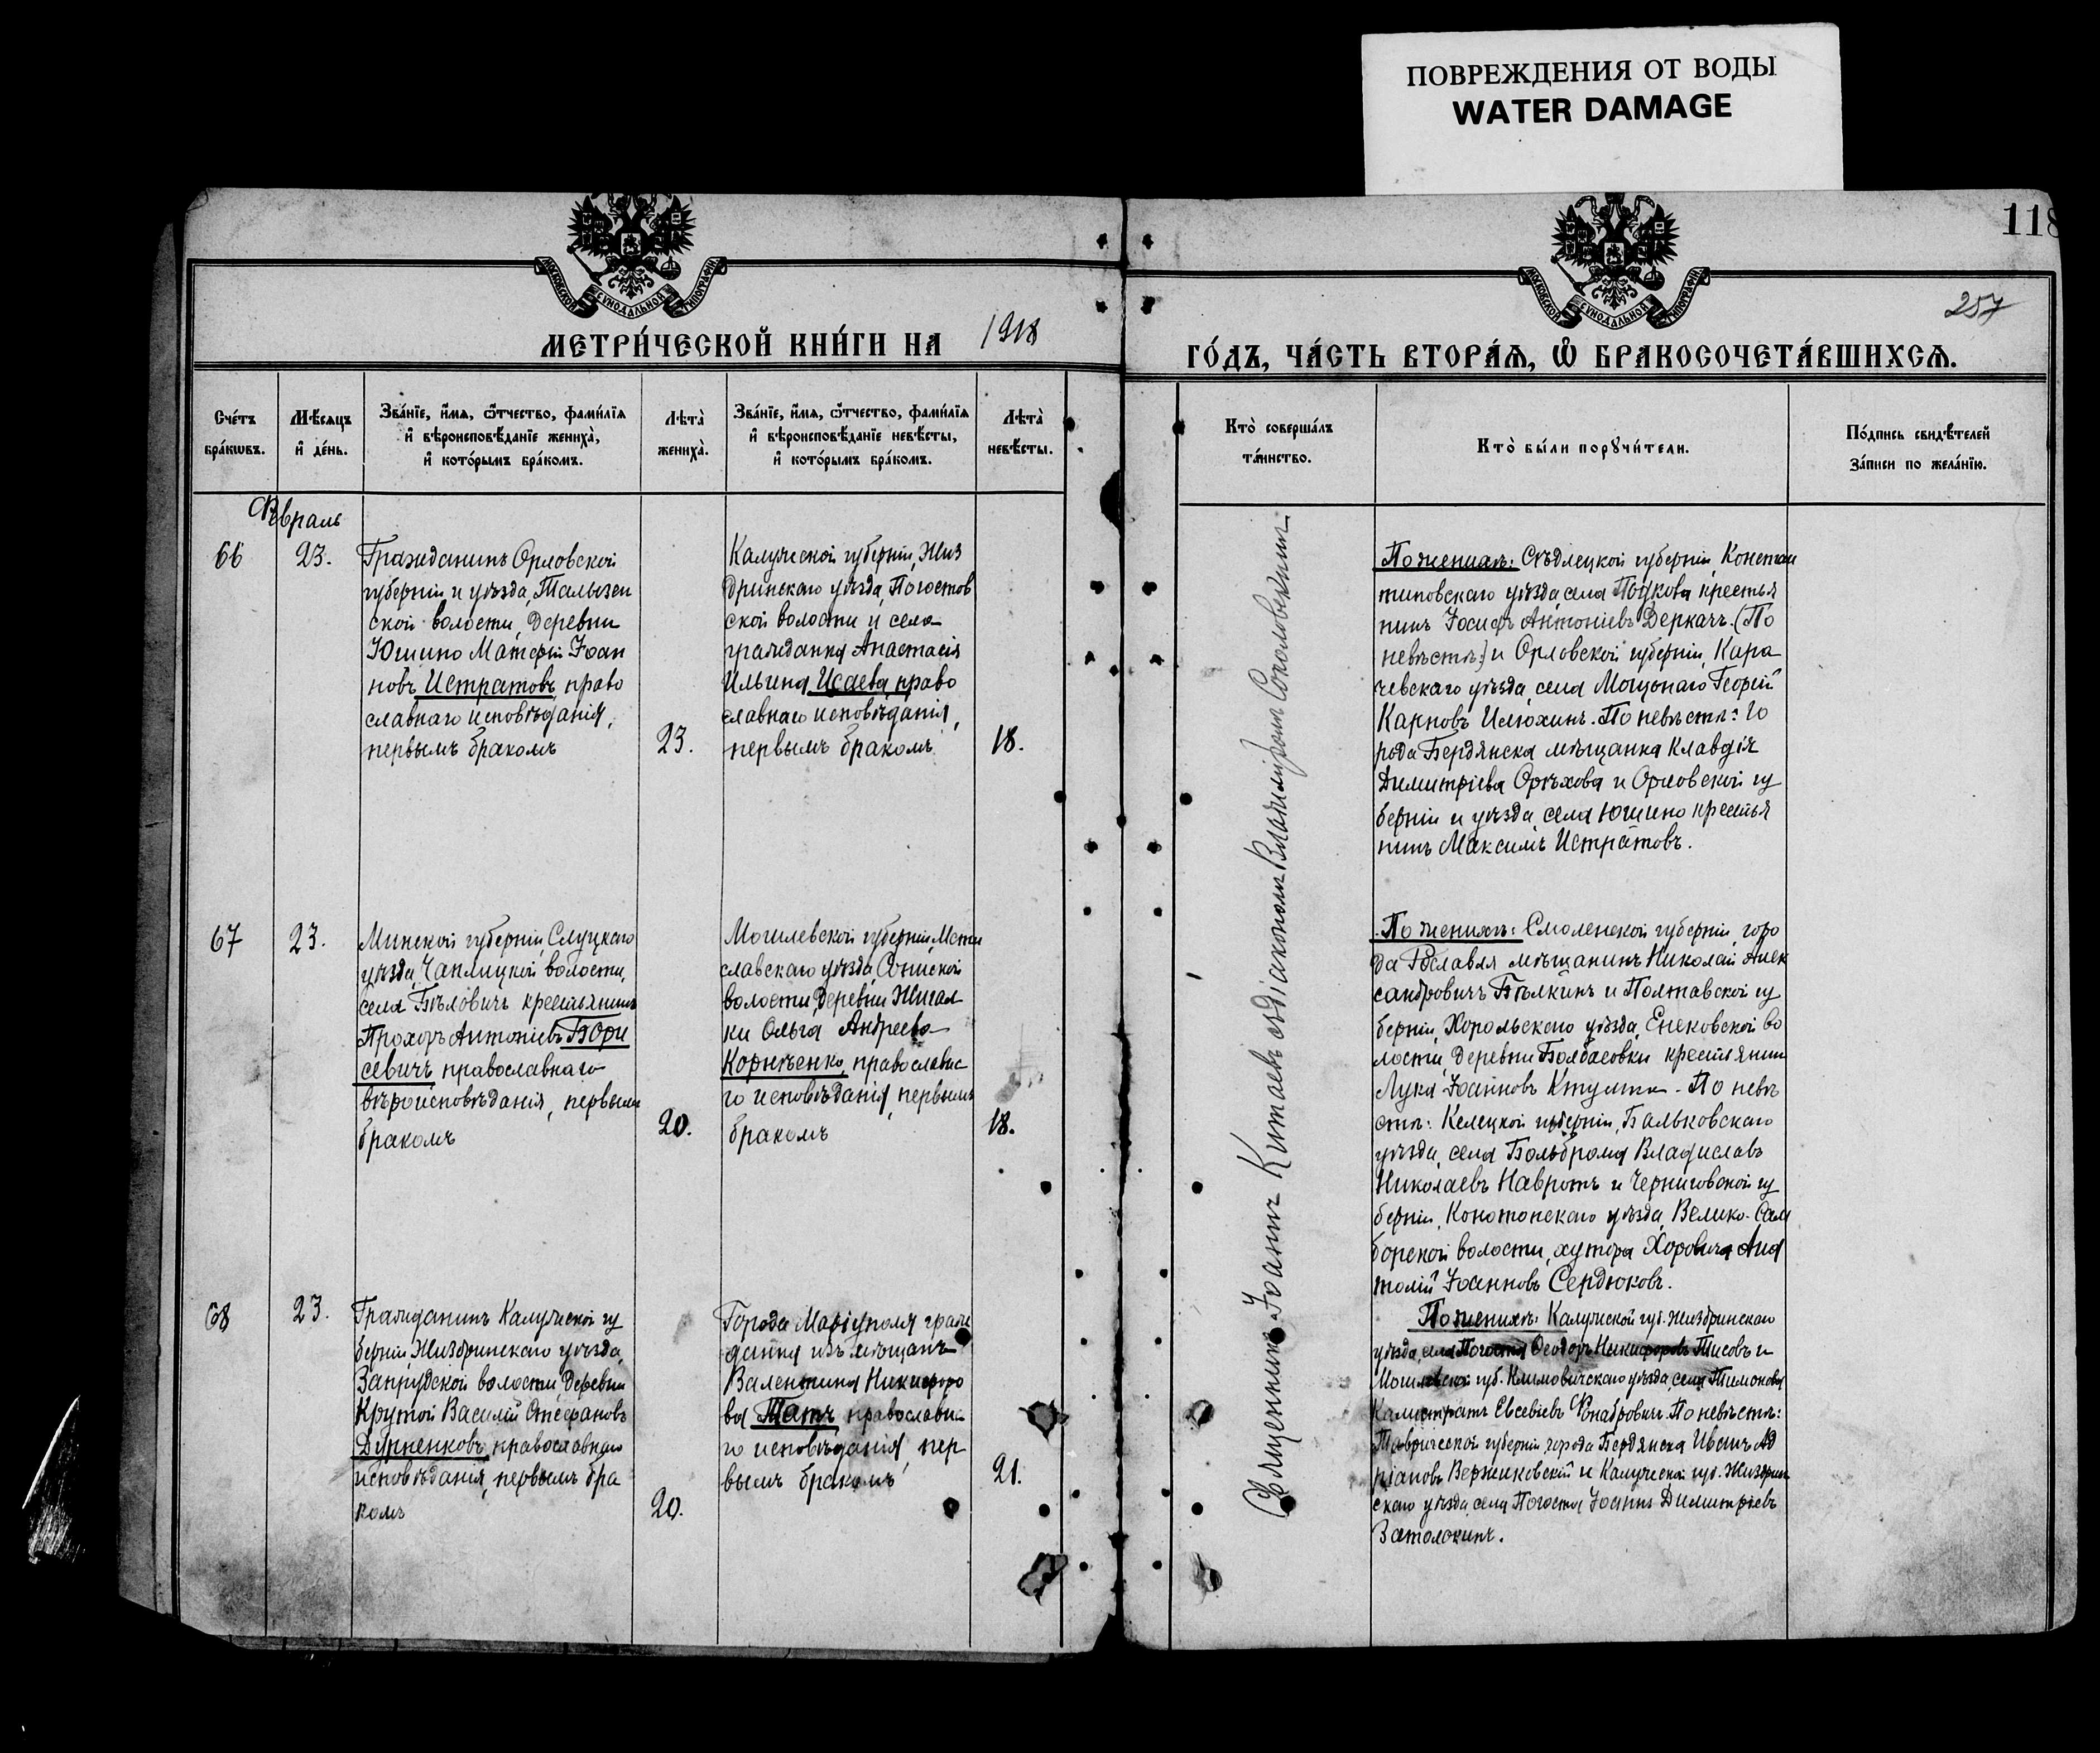 ПОВРЕЖДЕНИЯ ОТ ВОДЫ
WATER DAMAGE
118
257
МОСКОВСКОЙ СѴНОДАЛЬНОЙ ТИПОГРАФІИ
МОСКОВСКОЙ СѴНОДАЛЬНОЙ ТИПОГРАФІИ
МЕТРИ́ЧЕСКОЙ КНИ́ГИ НА 1918
ГО́ДЪ, ЧА́СТЬ ВТОРА́Ѧ, Ѡ҆ БРАКОСОЧЕТА́ВШИХСѦ.
Сче́тъ
бра́кѡвъ.
Мѣ́сѧцъ
и҆ де́нь.
Зва́нїе, и҆́мѧ, ѻ҆́тчество, фами́лїѧ
и҆ вѣроисповѣ́данїе жениха̀,
и҆ кото́рымъ бра́комъ.
Лѣта̀
жениха̀.
Зва́нїе, и҆́мѧ, ѻ҆́тчество, фами́лїѧ
и҆ вѣроисповѣ́данїе невѣ́сты,
и҆ кото́рымъ бра́комъ.
Лѣта̀
невѣ́сты.
Кто̀ соверша́лъ
та́инство.
Кто̀ бы́ли порꙋчи́тели.
По́дпись свидѣ́телей
за́писи по жела́нїю.
Февраль
66
23.
Гражданинъ Орловской
губерніи и уѣзда, Талызен
ской волости, деревни
Юшино Матфій Іоан
новъ Истратовъ, право
славнаго исповѣданія,
первымъ бракомъ
23.
Калужской губерніи, Жиз
дринскаго уѣзда, Погостов
ской волости и села
гражданка Анастасія
Ильина Исаева, право
славнаго исповѣданія,
первымъ бракомъ
18.
По женихѣ: Сѣдлецкой губерніи, Констан
тиновскаго уѣзда, села крестья
нинъ Іосифъ Антоніевъ Деркачъ. (По
невѣстѣ:) и Орловской губерніи, Кара
чевскаго уѣзда, села Георгій
Карповъ Илюхинъ. По невѣстѣ: го
рода Бердянска мѣщанка Клавдія
Димитріева Орѣхова и Орловской гу
берніи и уѣзда, села Юшино крестья
нинъ Максимъ Истратовъ.
67
23.
Минской губерніи, Слуцкаго
уѣзда, Чаплицкой волости,
села Бѣловичъ крестьянинъ
Прохоръ Антоніевъ Бори
севичъ православнаго
вѣроисповѣданія, первымъ
бракомъ
20.
Могилевской губерніи, Мсти
славскаго уѣзда,
волости, деревни Жигал
ки Ольга Андреева
Корнѣенко, православна
го исповѣданія, первымъ
бракомъ
18.
По женихѣ: Смоленской губерніи, горо
да Рославля мѣщанинъ Николай Алек
сандровичъ Бѣлкинъ и Полтавской гу
берніи, Хорольскаго уѣзда, Еньковской во
лости, деревни Болбасовки крестьянин
Лука Іоанновъ По невѣ
стѣ: Келецкой губерніи,
уѣзда, села Владиславъ
Николаевъ Навротъ и Черниговской гу
берніи, Конотопскаго уѣзда, Велико-Сам
борской волости, хутора Ана
толій Іоанновъ Сердюковъ.
68
23.
Гражданинъ Калужской гу
берніи, Жиздринскаго уѣзда,
Запрудской волости деревни
Крутой Василій Стефановъ
Дурненковъ, православнаго
исповѣданія, первымъ бра
комъ
20.
Города Маріуполя граж
данка изъ мѣщанъ
Валентина Никифоро
ва Татъ православна
го исповѣданія, пер
вымъ бракомъ
21.
По женихѣ: Калужской губ. Жиздринскаго
уѣзда, села Погоста Ѳеодоръ Никифоровъ Тисовъ и
Могилевской губ. Климовичскаго уѣзда, села Тимонова
Калистратъ Евсевіевъ По невѣстѣ:
Таврической губерніи города Бердянска Иванъ Ад
ріановъ Вержиковскій и Калужской губ. Жиздрин
скаго уѣзда, села Погоста Іоаннъ Димитріевъ
Затолокинъ.
Священникъ Іоаннъ Китаевъ съ діакономъ Владиміромъ Соколовскимъ